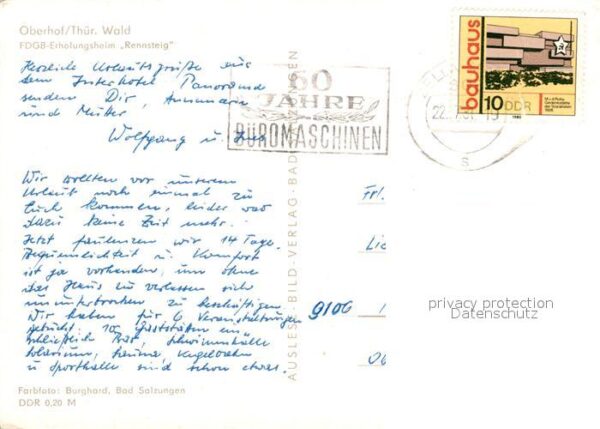 Oberhof/Thür. Wald
FDGB-Erholungsheim „Rennsteig"
Herzliche Urlaubsgrüße aus
dem Interhotel Panorama
senden Dir, Annemarie
und Mutter
Wolfgang u.
Wir wollten vor unserem
Urlaub noch einmal zu
Euch kommen, leider war
dazu keine Zeit mehr.
Jetzt faulenzen wir 14 Tage.
Bequemlichkeit u. Komfort
ist ja vorhanden, um ohne
das Haus zu verlassen sich
ununterbrochen zu beschäftigen.
Wir haben für 6 Veranstaltungen
gebucht. 10 Gaststätten ein-
schließlich Bar, Schwimmhalle
Solarium, Sauna, Kegelbahn
u Sporthalle sind schon etwas.
Farbfoto: Burghard, Bad Salzungen
DDR 0,20 M
AUSLESE-BILD-VERLAG-BAD SALZUNGEN
60
JAHRE
BÜROMASCHINEN
22.7.81
s
bauhaus
10 DDR
1980
Frl.
Lic
9106
privacy protection
Datenschutz